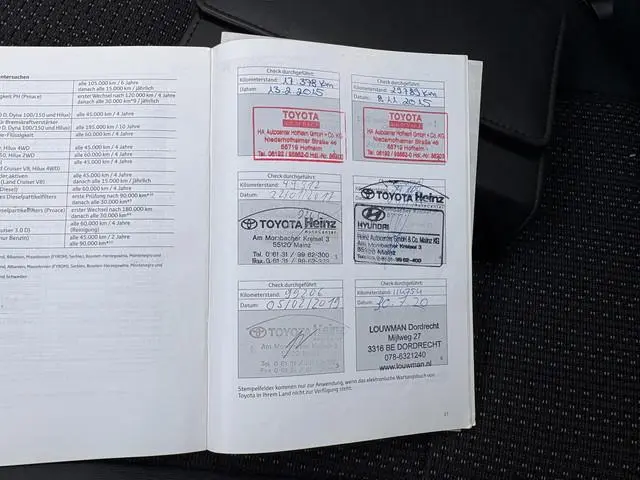 ntersuchen
alle 105.000 km / 6 Jahre
danach alle 15.000 km / jährlich
gkeit PH (Proace)
erster Wechsel nach 120.000 km / 4 Jahre
danach alle 30.000 km*⁹ / jährlich
D, Dyna 100/150 und Hilux)
alle 45.000 km / 4 Jahre
für Bremskraftverstärker
D, Dyna 100/150 und Hilux)
alle 195.000 km / 10 Jahre
e-Flüssigkeit
alle 60.000 km / 4 Jahre
r, Hilux 4WD)
alle 45.000 km / 4 Jahre
50, Hilux 2WD)
alle 60.000 km / 4 Jahre
Cruiser V8, Hilux 4WD)
alle 45.000 km
der.aktiven
(Land Cruiser V8)
alle 45.000 km / 4 Jahre
danach alle 15.000 km / jährlich
Diesel)
alle 60.000 km / 4 Jahre
es Dieselpartikelfilters
erste Prüfung nach 90.000 km
danach alle 30.000 km
eselpartikelfilters (Proace)
erster Wechsel nach 180.000 km
danach alle 30.000 km
alle 60.000 km / 4 Jahre
(Reinigung)
ruiser 3.0 D)
nur Benzin)
alle 45.000 km / 2 Jahre
alle 90.000 km
Check durchgeführt:
Kilometerstand: 17 378 Km
Datum: 13.2.2015
TOYOTA
HA Autocenter Hofheim GmbH + Co. KG
Niederhofheimer Straße 46
65719 Hofheim
Tel. 06192 / 95862-0
Check durchgeführt:
Kilometerstand: 29785 Km
Datum: 8.11.2015
TOYOTA
HA Autocenter Hofheim GmbH + Co. KG
Niederhofheimer Straße 46
65719 Hofheim
Tel. 06192 / 95862-0
Check durchgeführt:
Kilometerstand:
Datum:
TOYOTA Heinz
Autocenter
Am Mombacher Kreisel 3
55120 Mainz
Tel. 0 61 31 / 99 62-300
TOYOTA Heinz
HYUNDAI
Heinz Autocenter GmbH & Co. Mainz KG
Am Mombacher Kreisel 3
55120 Mainz
Check durchgeführt:
Kilometerstand: 99206
Datum: 05/02/2019
TOYOTA Heinz
Am Mombacher Kreisel 3
55120 Mainz
Check durchgeführt:
Kilometerstand: 114754
Datum: 30.7.20
LOUWMAN Dordrecht
Mijlweg 27
3316 BE DORDRECHT
078-6321240
www.louwman.nl
Stempelfelder kommen nur zur Anwendung, wenn das elektronische Wartungsbuch von
Toyota in Ihrem Land nicht zur Verfügung steht.